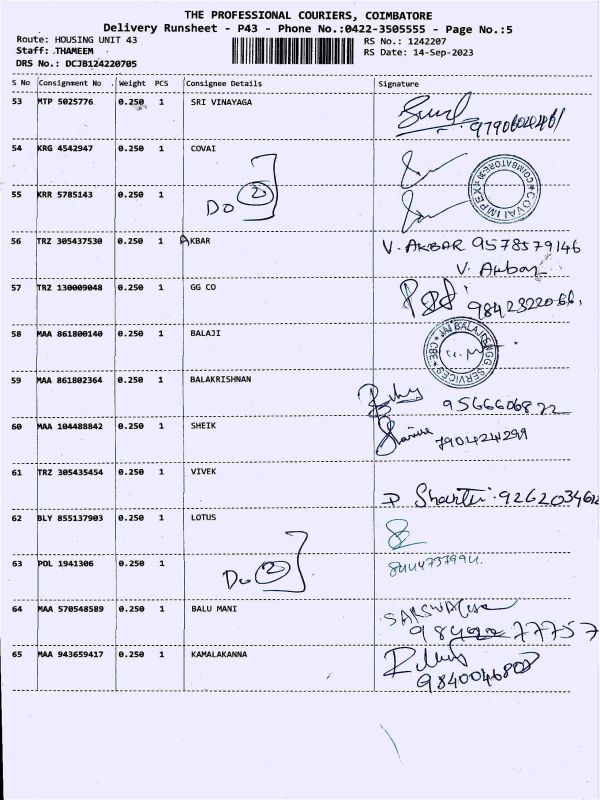 THE PROFESSIONAL COURIERS, COIMBATORE
Delivery Runsheet - P43 - Phone No.:0422-3505555 - Page No.:5
Route: HOUSING UNIT 43
RS No.: 1242207
Staff: THAMEEM
RS Date: 14-Sep-2023
DRS No.: DCJB124220705
S No Consignment No Weight PCS Consignee Details Signature
53 MTP 5025776 0.250 1 SRI VINAYAGA
54 KRG 4542947 0.250 1 COVAI
COVAI IMPEX COIMBATORE
Do 2
55 KRR 5785143 0.250 1
56 TRZ 305437530 0.250 1 AKBAR V. AKBAR 9578579146
V. Akbar
57 TRZ 130009048 0.250 1 GG CO
9842322066.
58 MAA 861800140 0.250 1 BALAJI
ENGG SERVICES CBE
59 MAA 861802364 0.250 1 BALAKRISHNAN
60 MAA 104488842 0.250 1 SHEIK
7904241299
61 TRZ 305435454 0.250 1 VIVEK
P Shanti
62 BLY 855137903 0.250 1 LOTUS
63 POL 1941306 0.250 1
Do 2
64 MAA 570548589 0.250 1 BALU MANI
77757
65 MAA 943659417 0.250 1 KAMALAKANNA